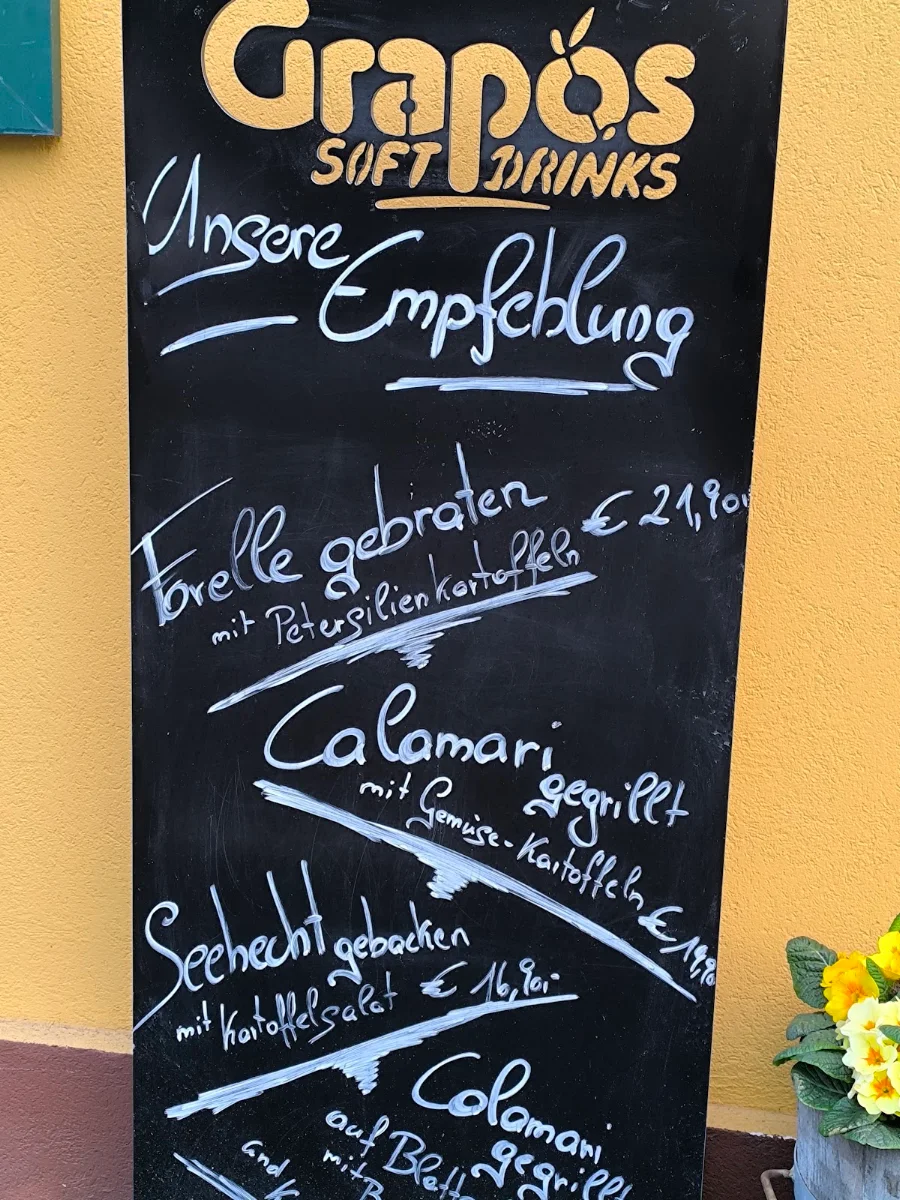 Grapos
SOFT DRINKS
Unsere
Empfehlung
Forelle gebraten € 21,90
mit Petersilienkartoffeln
Calamari
gegrillt
mit Gemüse-Kartoffeln
Seehecht gebacken
mit Kartoffelsalat € 16,90
Calamari
gegrillt
auf
mit
und